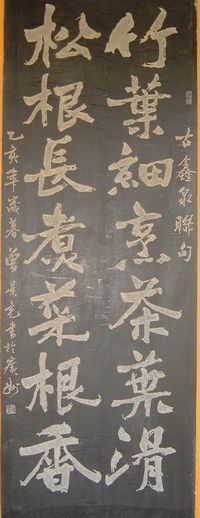 古鑫泉聯句
竹葉細烹茶葉滑
松根長煮菜根香
乙亥年歲暮曾景充書於廣州